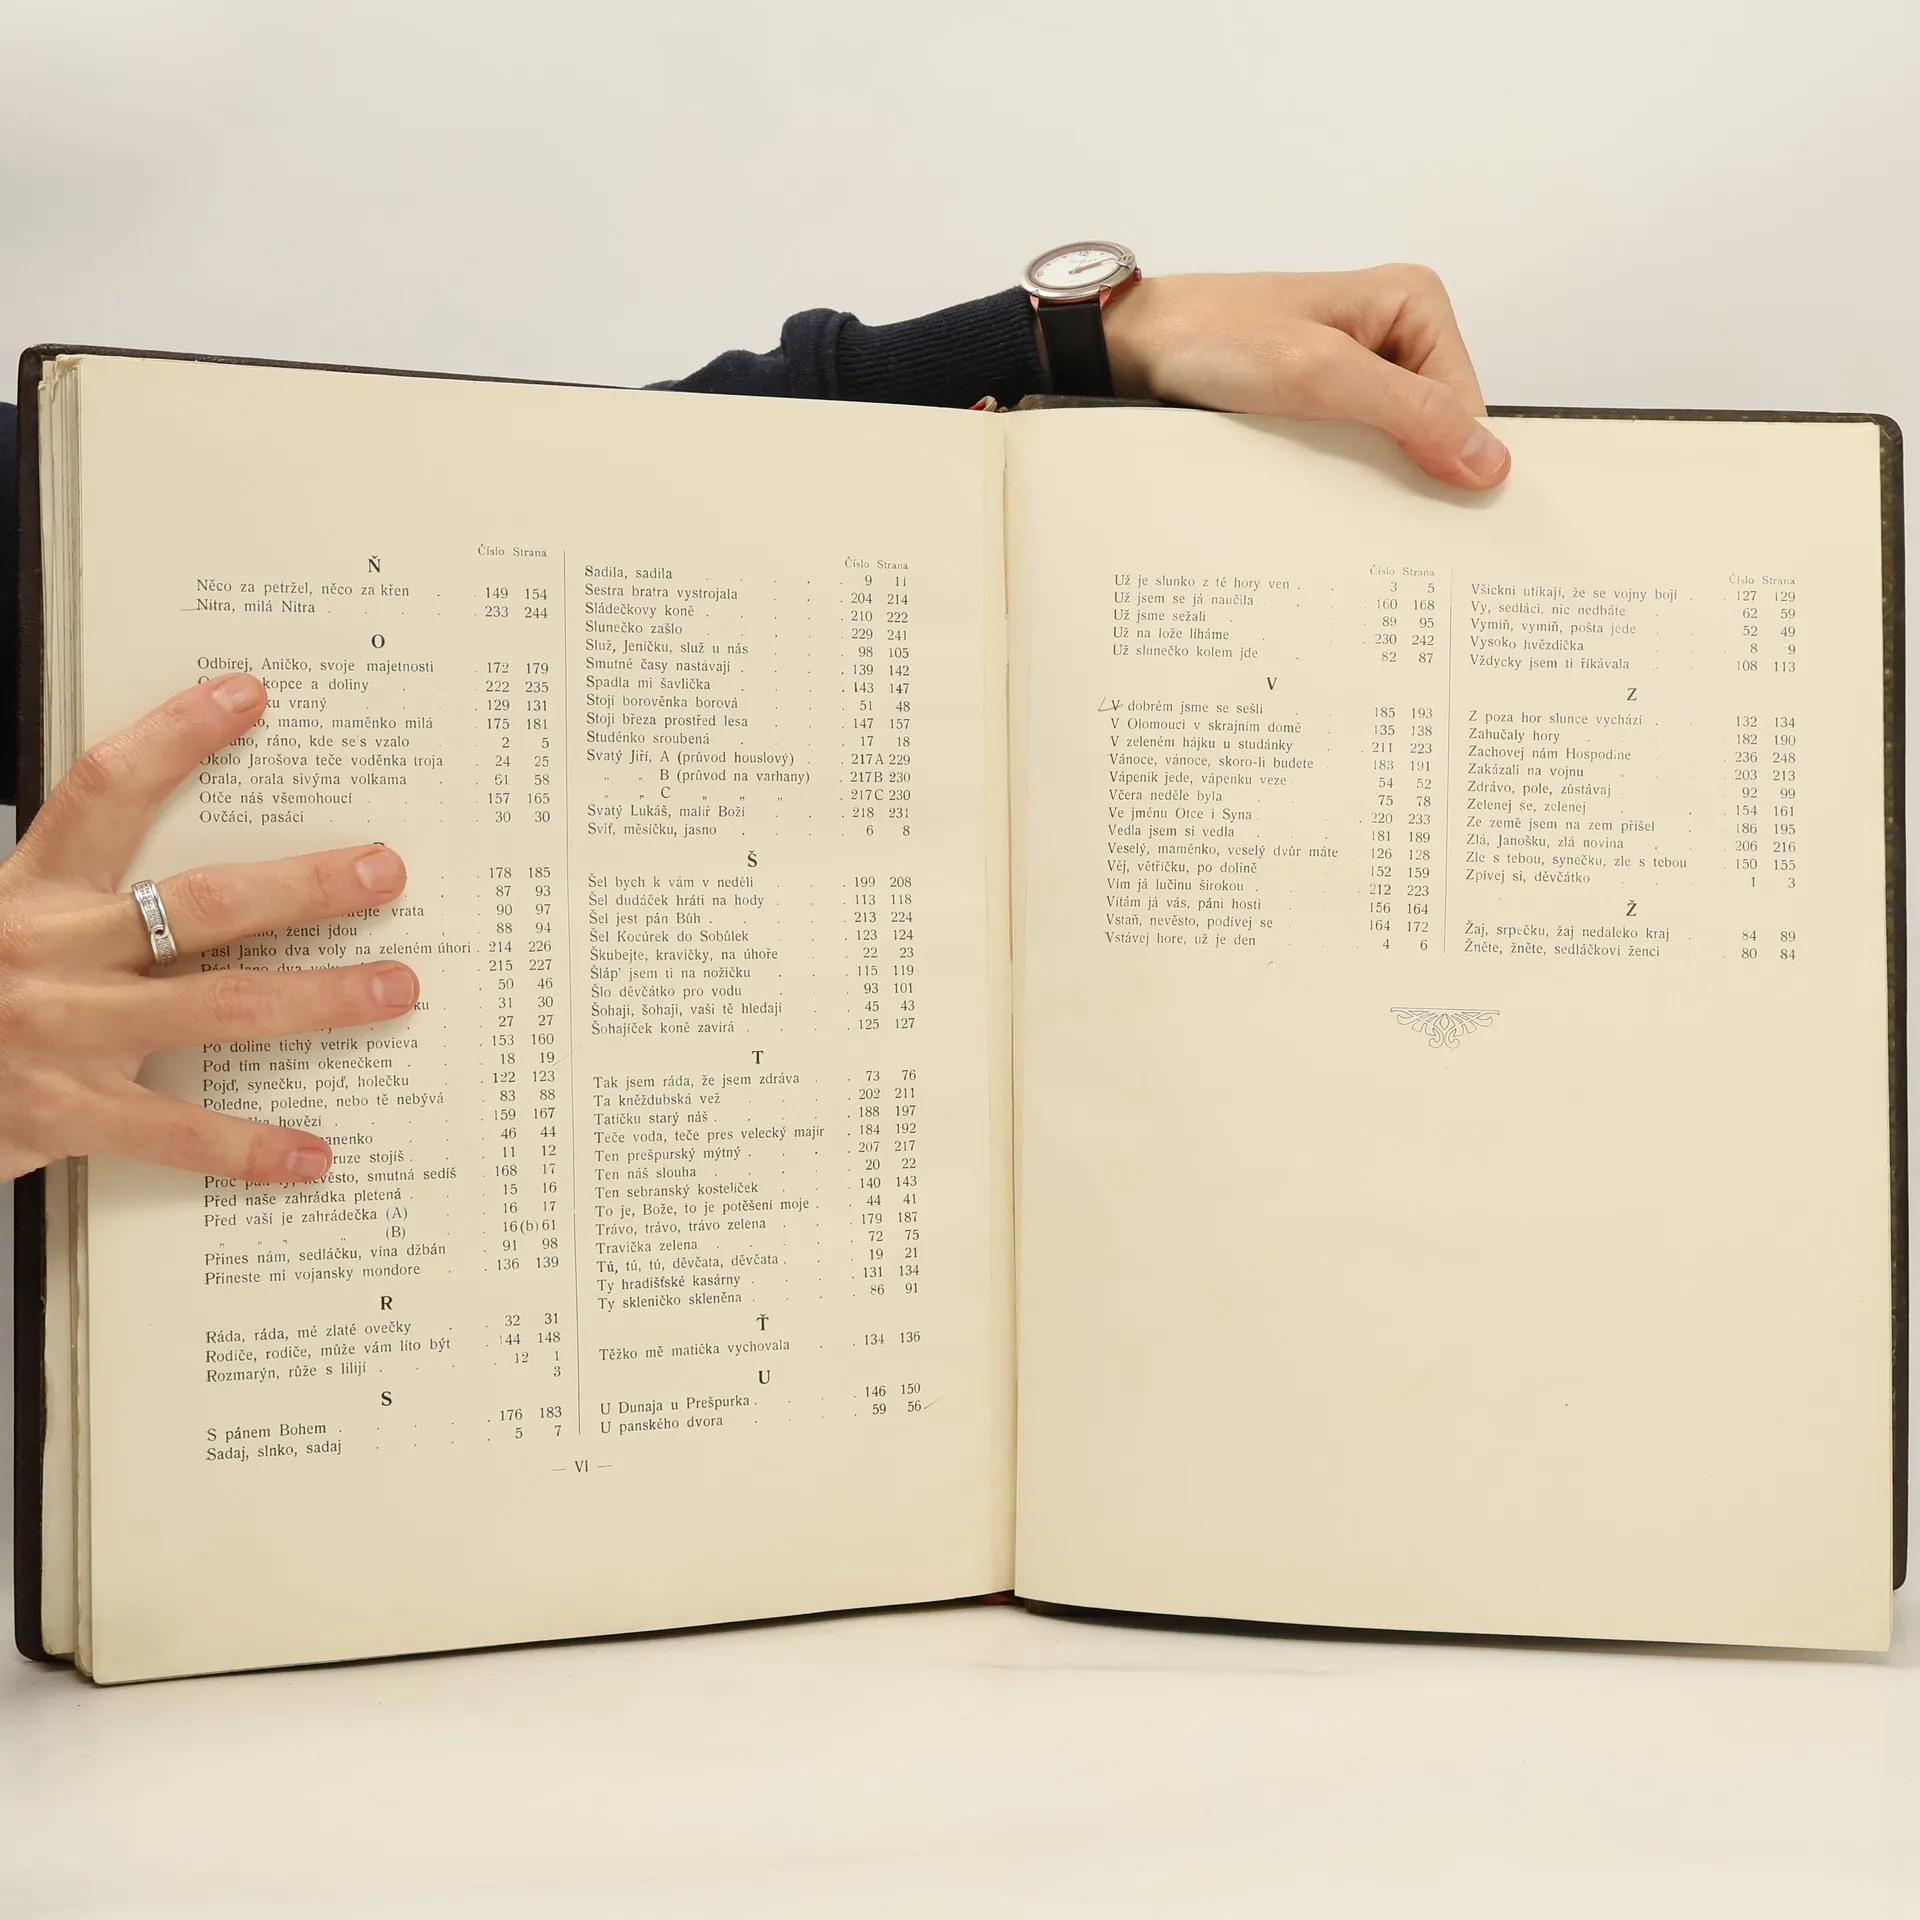 Číslo Strana
Ň
Něco za petržel, něco za křen . 149 154
Nitra, milá Nitra . . . . 233 244
O
Odbírej, Aničko, svoje majetnosti . 172 179
kopce a doliny . . 222 235
ku vraný . . . 129 131
mamo, maměnko milá . 175 181
ráno, kde se's vzalo . . 2 5
Okolo Jarošova teče voděnka troja . 24 25
Orala, orala sivýma volkama . . 61 58
Otče náš všemohoucí . . . . 157 165
Ovčáci, pasáci . . . . . 30 30
. . 178 185
. . 87 93
vrata . 90 97
ženci jdou . . . . 88 94
Pásl Janko dva voly na zeleném úhori . 214 226
Pásl Jano dva voly . 215 227
. 50 46
. 31 30
. . . 27 27
Po doline tichý vetrík povieva . . 153 160
Pod tím naším okenečkem . . . 18 19
Pojď, synečku, pojď, holečku . . 122 123
Poledne, poledne, nebo tě nebývá . 83 88
hovězí . . . . . 159 167
. . . 46 44
stojíš . . . 11 12
Proč smutná sedíš . 168 17
Před naše zahrádka pletená . . . 15 16
Před vaší je zahrádečka (A) . . 16 17
„ „ „ „ (B) . . 16(b) 61
Přines nám, sedláčku, vína džbán . 91 98
Přineste mi vojansky mondore . . 136 139
R
Ráda, ráda, mé zlaté ovečky . . 32 31
Rodiče, rodiče, může vám líto být . 144 148
Rozmarýn, růže s lilijí . . . . 12 1
3
S
S pánem Bohem . . . . . 176 183
Sadaj, slnko, sadaj . . . . 5 7
Číslo Strana
Sadila, sadila . . . . 9 11
Sestra bratra vystrojala . . . 204 214
Sládečkovy koně . . . . . 210 222
Slunečko zašlo . . . . . 229 241
Služ, Jeníčku, služ u nás . . . 98 105
Smutné časy nastávají . . . . 139 142
Spadla mi šavlička . . . . 143 147
Stojí borověnka borová . . . 51 48
Stojí březa prostřed lesa . . . 147 157
Studénko sroubená . . . . 17 18
Svatý Jiří, A (průvod houslový) . . 217 A 229
„ „ B (průvod na varhany) . 217 B 230
„ „ C „ „ „ . 217 C 230
Svatý Lukáš, malíř Boží . . . 218 231
Sviť, měsíčku, jasno . . . . 6 8
Š
Šel bych k vám v neděli . . . 199 208
Šel dudáček hráti na hody . . . 113 118
Šel jest pán Bůh . . . . . 213 224
Šel Kocúrek do Sobůlek . . . 123 124
Škubejte, kravičky, na úhoře . . 22 23
Šláp' jsem ti na nožičku . . . 115 119
Šlo děvčátko pro vodu . . . 93 101
Šohaji, šohaji, vaši tě hledají . . 45 43
Šohajíček koně zavírá . . . . 125 127
T
Tak jsem ráda, že jsem zdráva . . 73 76
Ta kněždubská vež . . . . 202 211
Tatíčku starý náš . . . . . 188 197
Teče voda, teče pres velecký majír . 184 192
Ten prešpurský mýtný . . . . 207 217
Ten náš slouha . . . . . 20 22
Ten sebranský kostelíček . . . 140 143
To je, Bože, to je potěšení moje . . 44 41
Trávo, trávo, trávo zelena . . . 179 187
Travička zelena . . . . . 72 75
Tú, tú, tú, děvčata, děvčata . . . 19 21
Ty hradišťské kasárny . . . . 131 134
Ty skleničko skleněna . . . . 86 91
Ť
Těžko mě matička vychovala . . 134 136
U
U Dunaja u Prešpurka . . . . 146 150
U panského dvora . . . . 59 56
— VI —
Číslo Strana
Už je slunko z té hory ven . . . 3 5
Už jsem se já naučila . . . 160 168
Už jsme sežali . . . . 89 95
Už na lože líháme . . . 230 242
Už slunečko kolem jde . . . 82 87
V
V dobrém jsme se sešli . . . 185 193
V Olomouci v skrajním domě . . 135 138
V zeleném hájku u studánky . . 211 223
Vánoce, vánoce, skoro-li budete . . 183 191
Vápeník jede, vápenku veze . . . 54 52
Včera neděle byla . . . . 75 78
Ve jménu Otce i Syna . . . . 220 233
Vedla jsem si vedla . . . . 181 189
Veselý, maměnko, veselý dvůr máte . 126 128
Věj, větříčku, po dolině . . . 152 159
Vím já lučinu širokou . . . . 212 223
Vítám já vás, páni hosti . . . 156 164
Vstaň, nevěsto, podívej se . . . 164 172
Vstávej hore, už je den . . . 4 6
Číslo Strana
Všickni utíkají, že se vojny bojí . . 127 129
Vy, sedláci, nic nedbáte . . . 62 59
Vymiň, vymiň, pošta jede . . . 52 49
Vysoko hvězdička . . . . 8 9
Vždycky jsem ti říkávala . . . 108 113
Z
Z poza hor slunce vychází . . . 132 134
Zahučaly hory . . . . 182 190
Zachovej nám Hospodine . . . 236 248
Zakázali na vojnu . . . . 203 213
Zdrávo, pole, zůstávaj . . . . 92 99
Zelenej se, zelenej . . . . 154 161
Ze země jsem na zem přišel . . 186 195
Zlá, Janošku, zlá novina . . . 206 216
Zle s tebou, synečku, zle s tebou . 150 155
Zpívej si, děvčátko . . . . 1 3
Ž
Žaj, srpečku, žaj nedaleko kraj . . 84 89
Žněte, žněte, sedláčkovi ženci . . 80 84